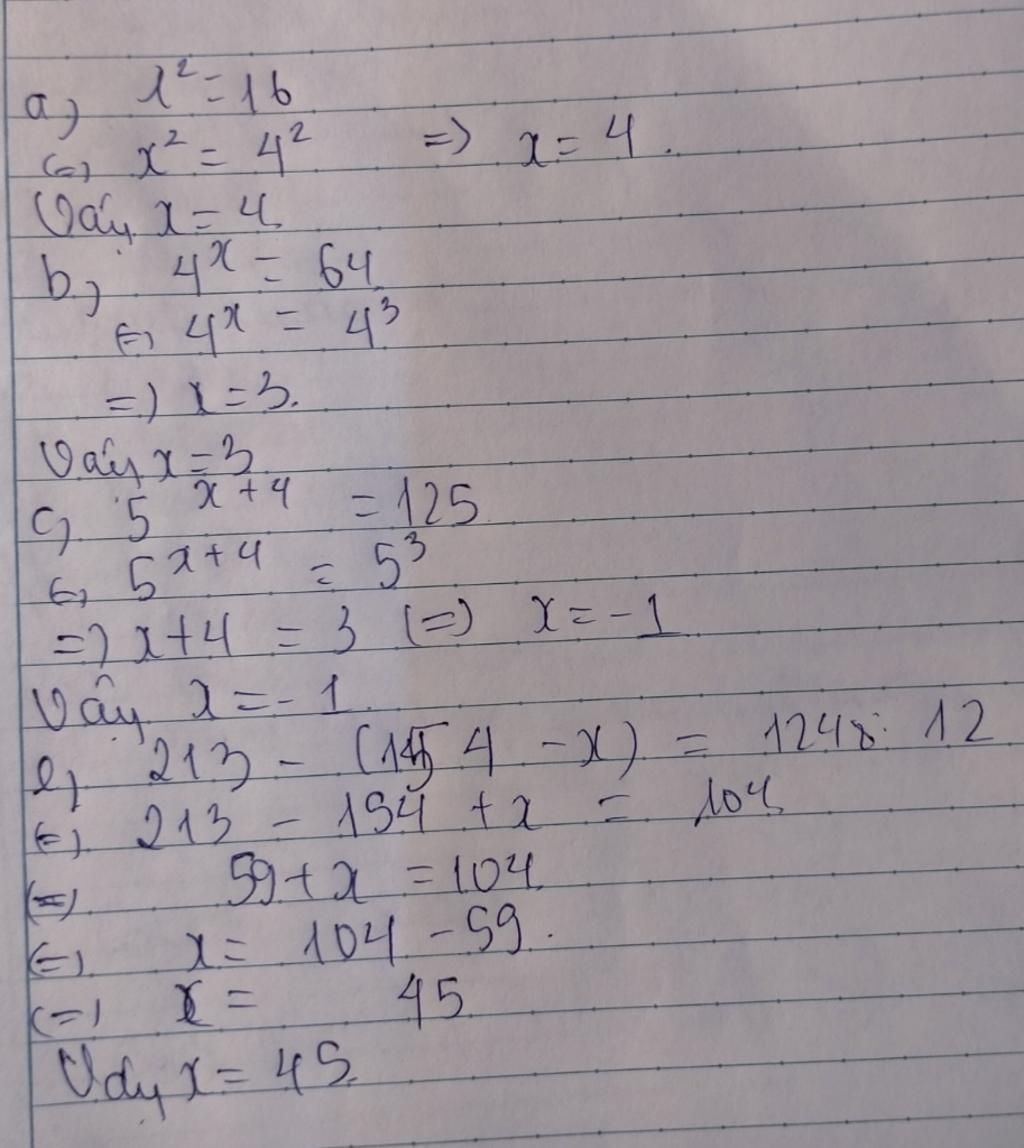 a) x² = 16
(=) x² = 4² => x = 4.
Vậy x = 4
b) 4ˣ = 64
(=) 4ˣ = 4³
=) x = 3.
Vậy x = 3
c) 5ˣ⁺⁴ = 125
(=) 5ˣ⁺⁴ = 5³
=) x + 4 = 3 (=) x = -1
Vậy x = -1.
e) 213 - (154 - x) = 1248 : 12
(=) 213 - 154 + x = 104
(=) 59 + x = 104
(=) x = 104 - 59.
(=) x = 45
Vậy x = 45